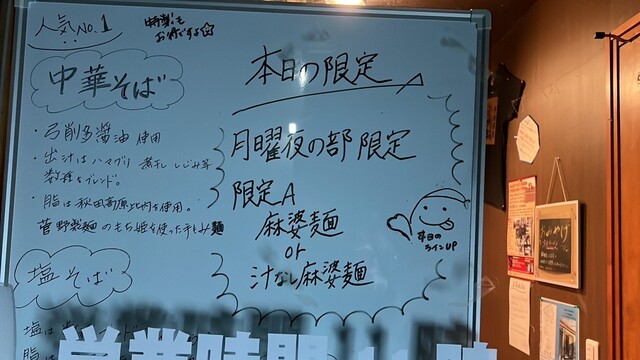 人気No.1
特製もおすすめ☆
中華そば
・弓削多醤油 使用
・出汁はハマグリ 煮干し しじみ等
数種をブレンド。
・脂は秋田高原比内を使用。
菅野製麺のもち姫を使った手もみ麺
塩そば
塩は
脂
本日の限定
月曜夜の部限定
限定A
麻婆麺
or
汁なし麻婆麺
本日の
ラインUP
営業時間